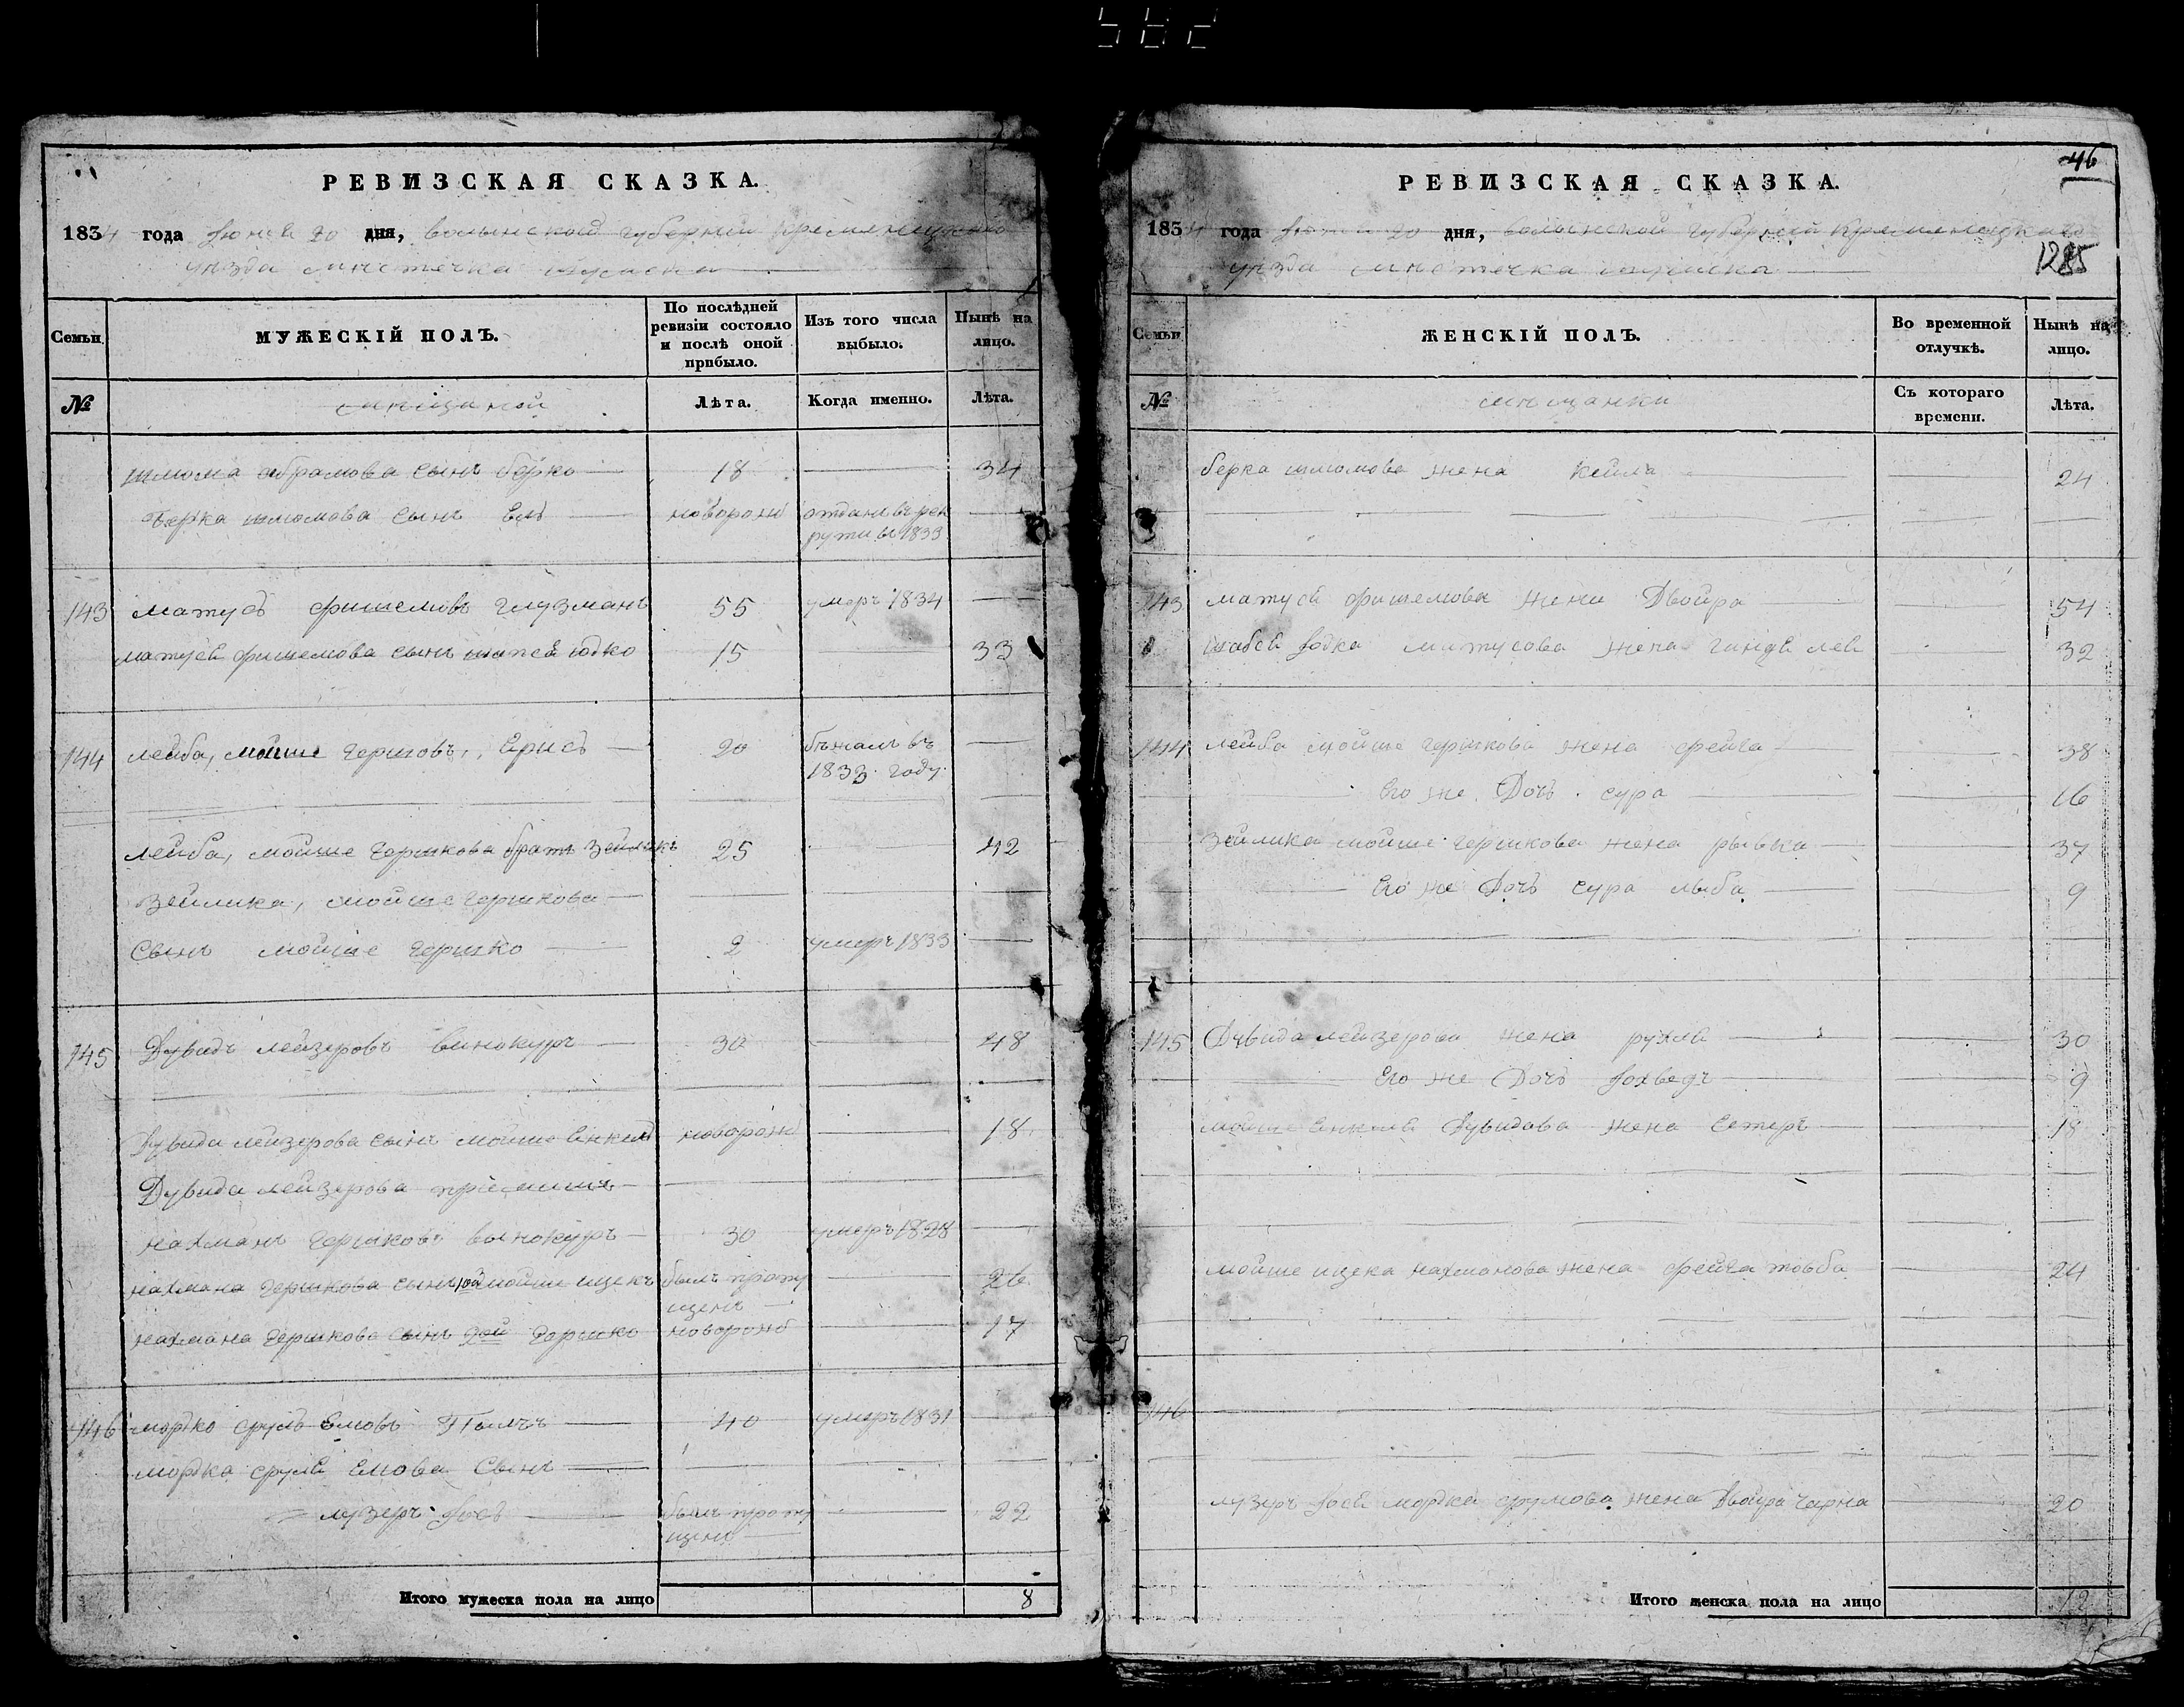 582
РЕВИЗСКАЯ СКАЗКА.
1834 года Июня 20 дня, волынской губерніи Кремянецкаго
уѣзда мѣстечка
Семьи
МУЖЕСКІЙ ПОЛЪ.
По послѣдней ревизіи состояло и послѣ оной прибыло.
Изъ того числа выбыло.
Нынѣ на лицо.
№
Лѣта.
Когда именно.
Лѣта.
шлиома абрамова сынъ берко 18 34
Берка шлиомова сынъ Ель новорожд отданъ въ рек
руты въ 1833
143 матусь фишелювъ глузманъ 55 умеръ 1834
матуся фишелова сынъ шапся юдко 15 33
144 лейба, мойше гершовъ, 20 бѣжалъ въ
1833 году
лейба, мойше гершкова братъ зейликъ 25 42
зейлика, мойше гершкова
сынъ мойше гершко 2 умеръ 1833
145 Дувидъ лейзеровъ винокуръ 30 48
Дувида лейзерова сынъ мойше новорожд 18
Дувида лейзерова пріемышъ
нахманъ гершковъ винокуръ 30 умеръ 1828
нахмана гершкова сынъ 1ой мойше ицекъ былъ пропу 26
щенъ
нахмана гершкова сынъ 2ой гершко новорожд 17
146 мордко сруль 40 умеръ 1831
мордка сруля сынъ
лузеръ былъ пропу 22
щенъ
Итого мужеска пола на лицо 8
46
РЕВИЗСКАЯ СКАЗКА.
1834 года Июня 20 дня, волынской губерніи Кремянецкаго
уѣзда мѣстечка
1285
Семьи
ЖЕНСКІЙ ПОЛЪ.
Во временной отлучкѣ.
Нынѣ на лицо.
№
мѣщанки
Съ котораго времени.
Лѣта.
берка шлиомова жена Кейла 24
143 матуся фишелова жена Двойра 54
матусова жена 32
144 лейба мойше гершкова жена фейга 38
Его же Дочь сура 16
зейлика мойше гершкова жена рывка 37
Его же Дочь сура 9
145 Дувида лейзерова жена рухля 30
Его же Дочь 9
мойше Дувидова жена Естеръ 18
мойше ицека нахманова жена фейга товба 24
146
лузеръ мордка срулова жена Двойра Чарна 20
Итого женска пола на лицо 12